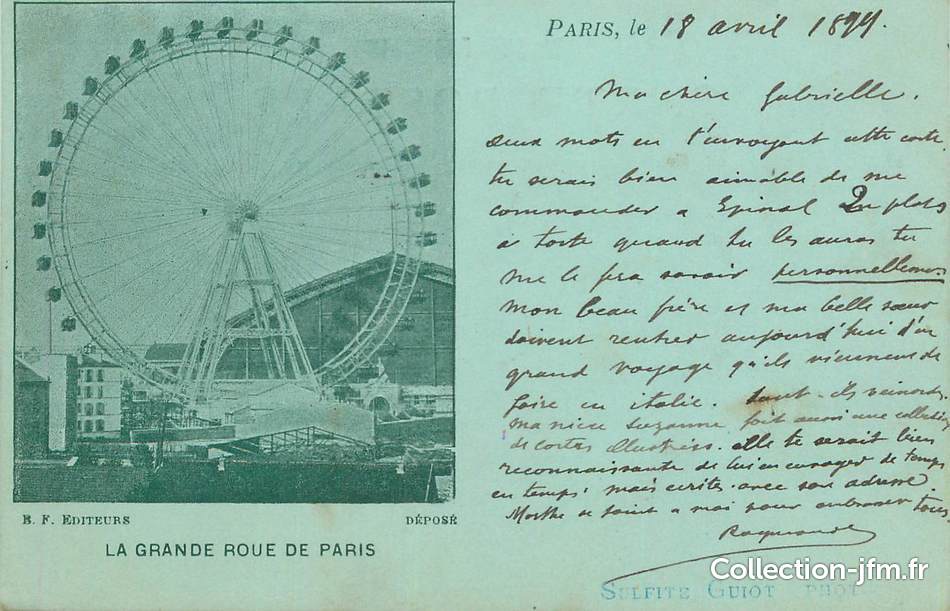 PARIS, le 18 avril 1899.
Ma chère Gabrielle.
deux mots en t'envoyant cette carte
tu serais bien aimable de me
commander a Epinal plats
à tarte quand tu les auras tu
me le fera savoir personnellement
mon beau frère et ma belle sœur
doivent rentrer aujourd'hui d'un
grand voyage qu'ils viennent de
faire en italie.
ma niece Suzanne fait aussi une collection
de cartes illustrées. elle te serait bien
reconnaissante de lui en envoyer de temps
en temps. mais ecrites avec son adresse.
Marthe se joint a moi pour embrasser tous
Raymonde
B. F. EDITEURS
DÉPOSÉ
LA GRANDE ROUE DE PARIS
SULFITE GUIOT PHOT
Collection-jfm.fr